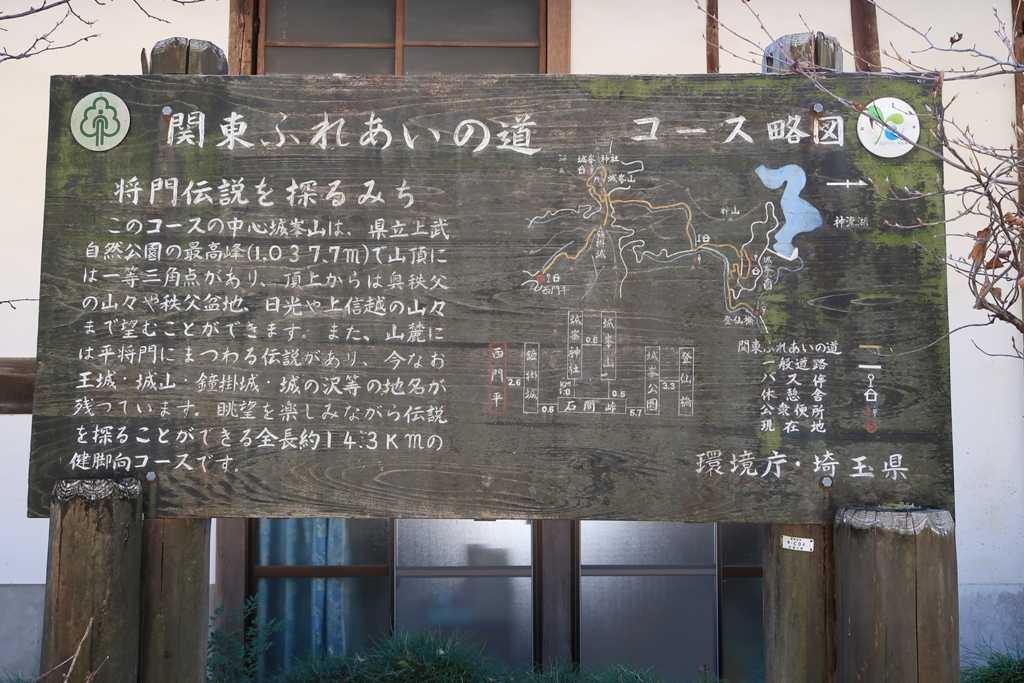 関東ふれあいの道 コース略図
将門伝説を探るみち
このコースの中心城峯山は、県立上武
自然公園の最高峰(1.037.7m)で山頂に
は一等三角点があり、頂上からは奥秩父
の山々や秩父盆地、日光や上信越の山々
まで望むことができます。また、山麓に
は平将門にまつわる伝説があり、今なお
王城・城山・鐘掛城・城の沢等の地名が
残っています。眺望を楽しみながら伝説
を探ることができる全長約14.3Kmの
健脚向コースです。
城峯神社
城峯山
神流湖
登仙橋
西門平
2.6
鐘掛城
0.6
城峯神社
0.6
城峯山
Km
1.0
0.5
石間峠
5.7
城峯公園
3.3
登仙橋
関東ふれあいの道
一般道路
バス停
休憩舎
公衆便所
現在地
環境庁・埼玉県